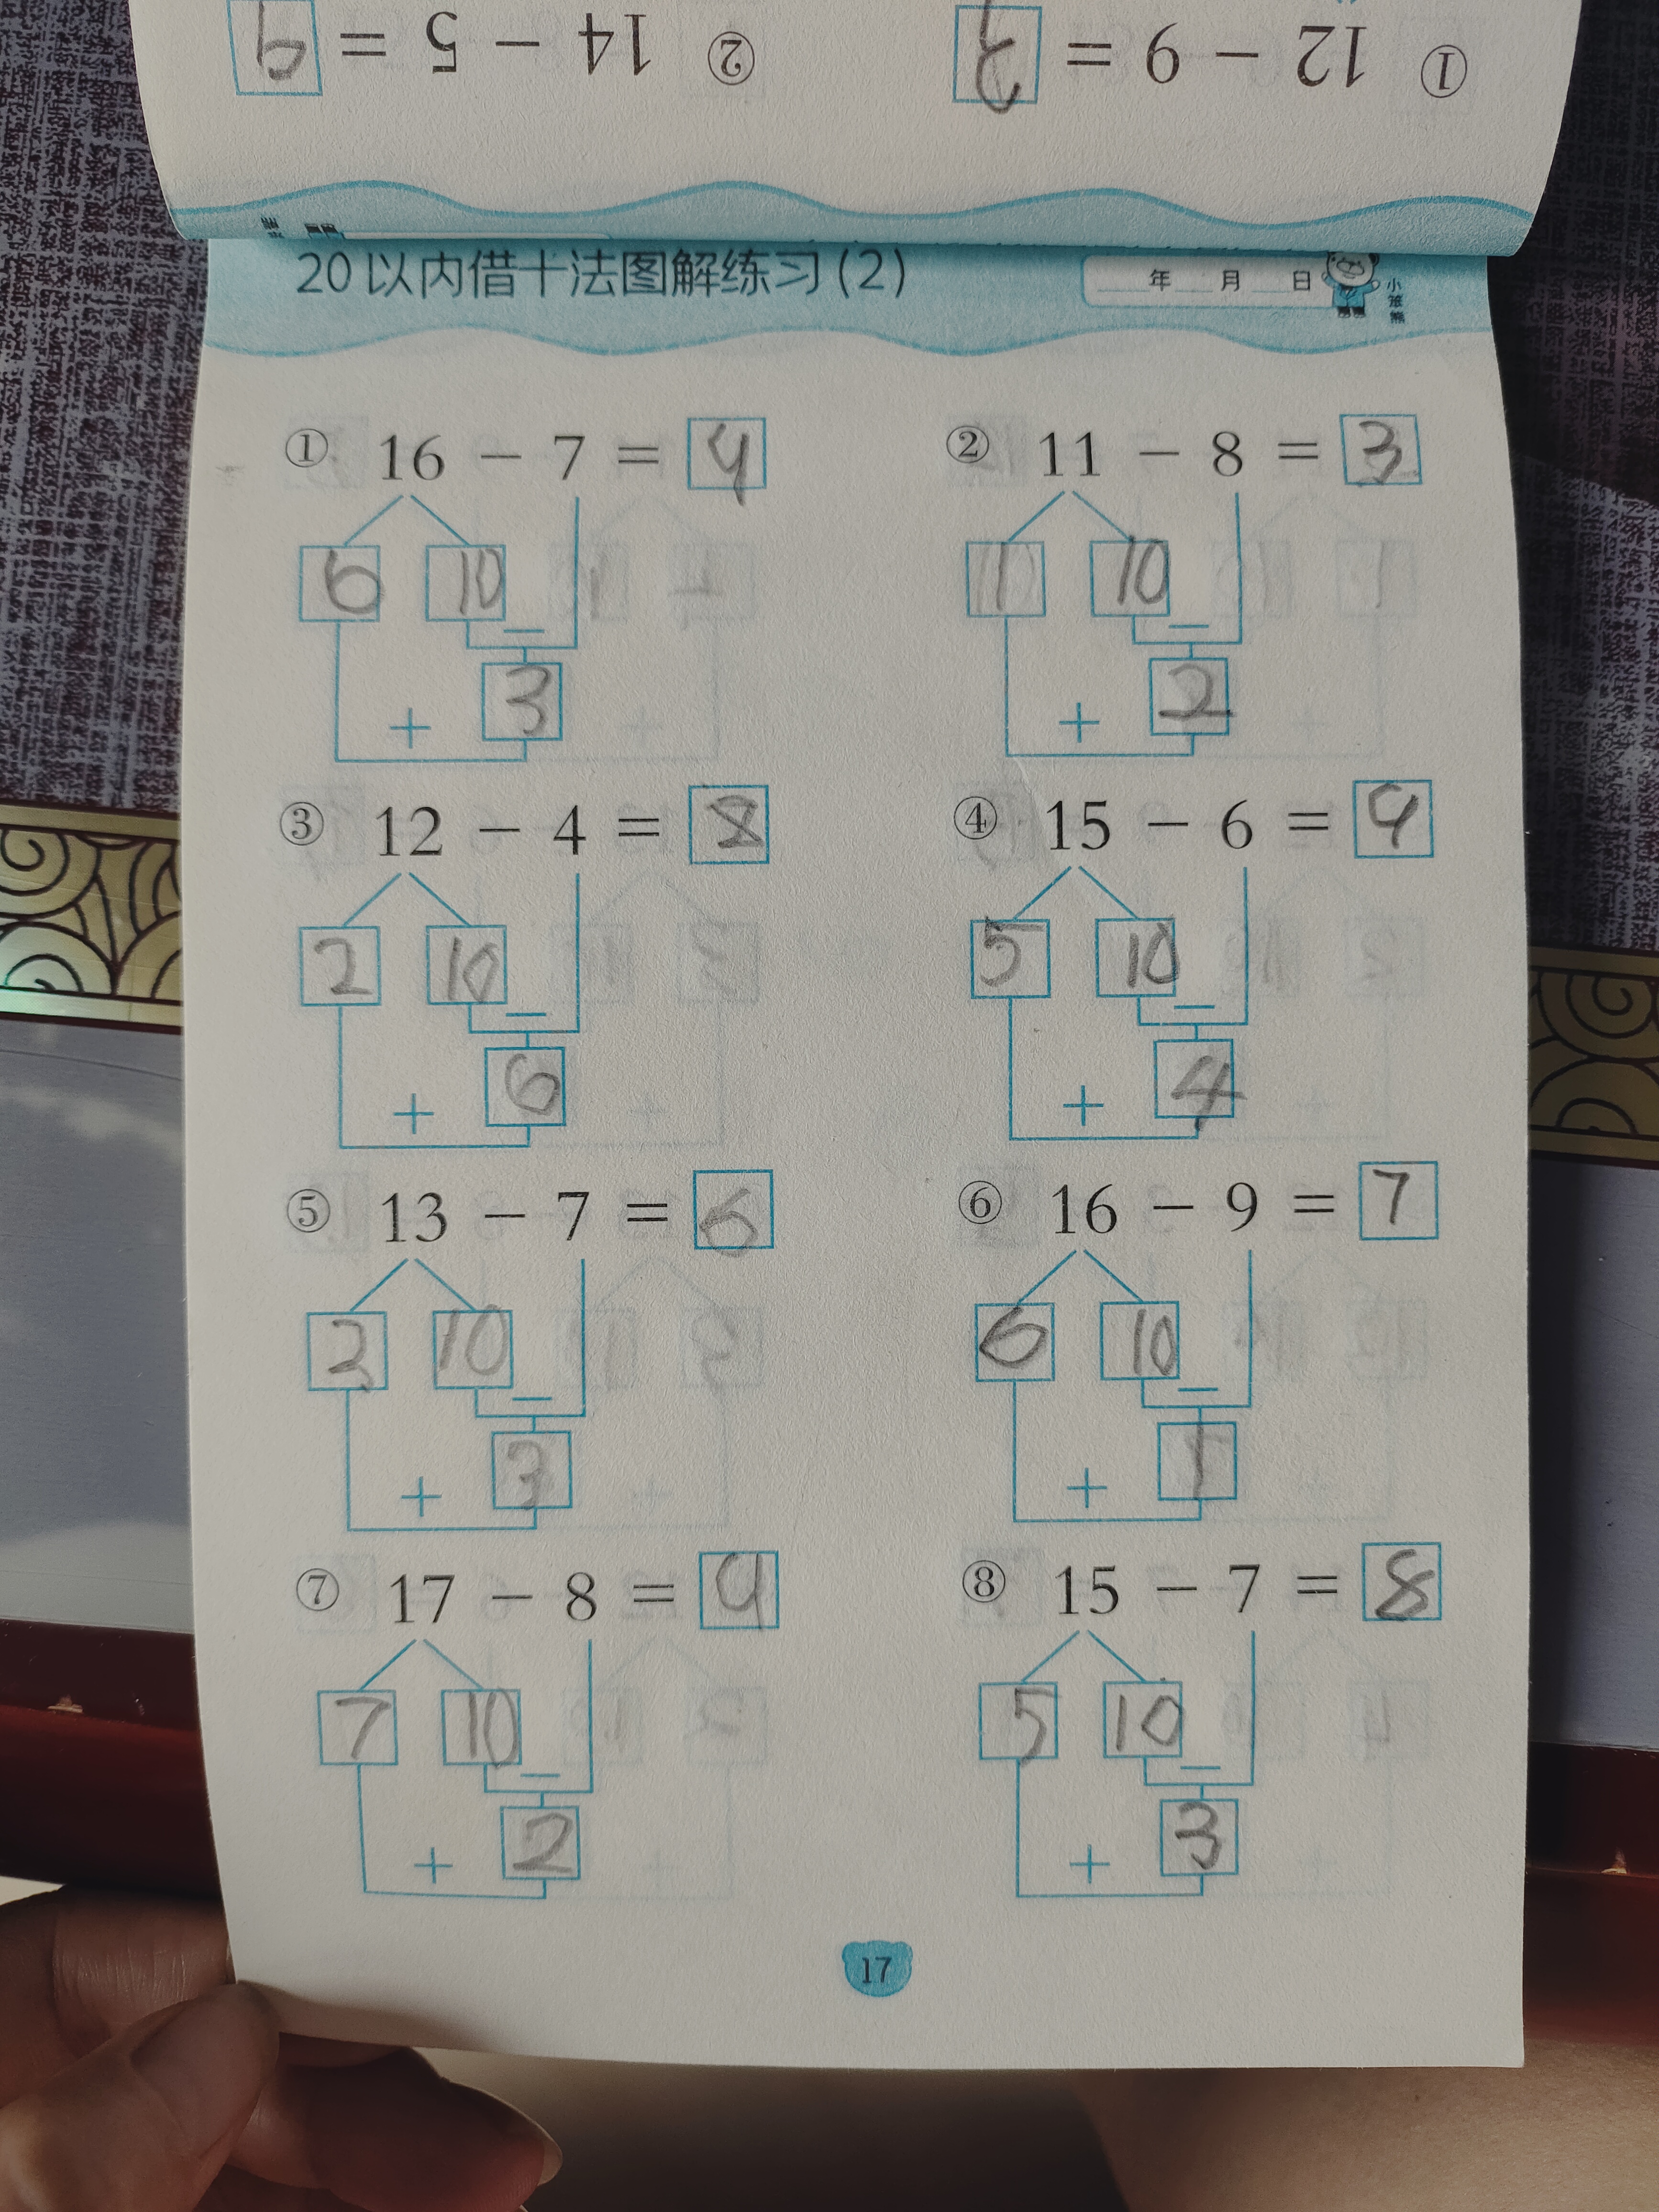 ① 12 − 9 = 3 ② 14 − 5 = 9
20以内借十法图解练习(2) 年 月 日 小笨熊
① 16 − 7 = 9 ② 11 − 8 = 3
6 10 1 10
−  −
3 2
+ +
③ 12 − 4 = 8 ④ 15 − 6 = 9
2 10 5 10
− −
6 4
+ +
⑤ 13 − 7 = 6 ⑥ 16 − 9 = 7
3 10 6 10
− −
3 1
+ +
⑦ 17 − 8 = 9 ⑧ 15 − 7 = 8
7 10 5 10
− −
2 3
+ +
17